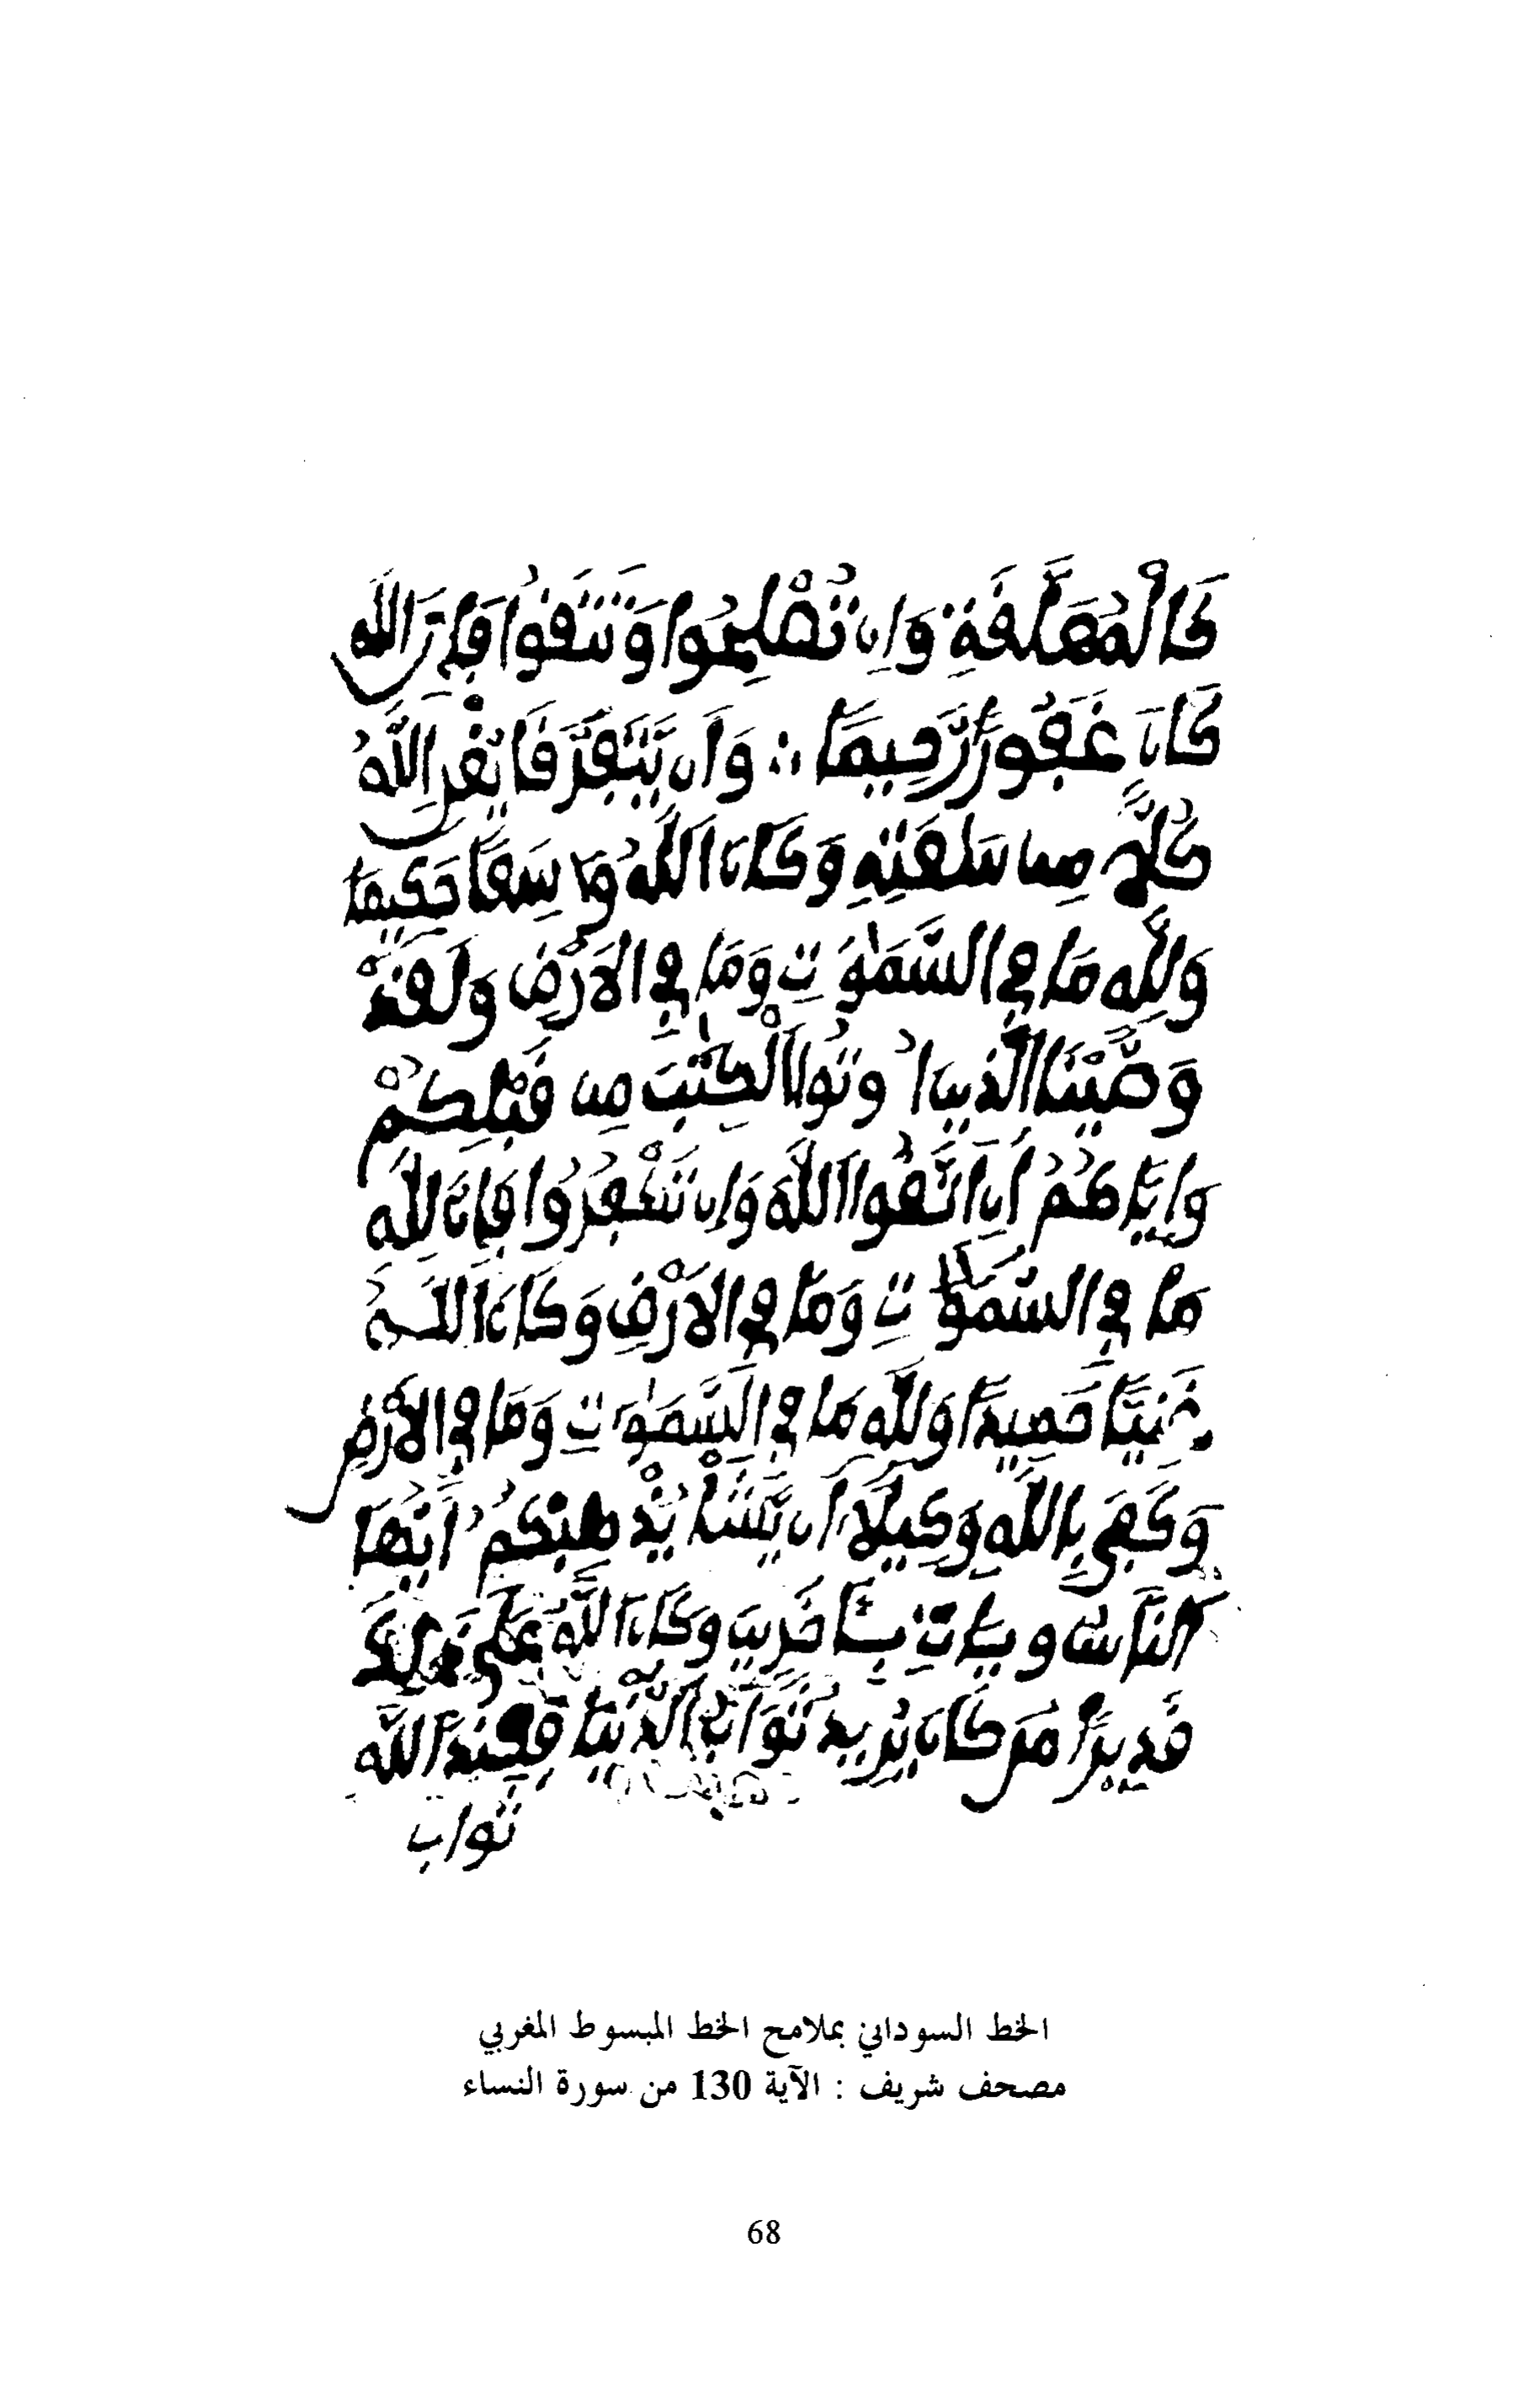 كَالْمُعَلَّقَةِ وَإِن تُصْلِحُوا وَتَتَّقُوا فَإِنَّ اللَّهَ
كَانَ غَفُورًا رَّحِيمًا ؞ وَإِن يَتَفَرَّقَا يُغْنِ اللَّهُ
كُلًّا مِن سَعَتِهِ وَكَانَ اللَّهُ وَاسِعًا حَكِيمًا
وَلِلَّهِ مَا فِي السَّمَوَاتِ وَمَا فِي الاَرْضِ وَلَقَدْ
وَصَّيْنَا الَّذِينَ أُوتُوا الْكِتَبَ مِن قَبْلِكُمْ
وَإِيَّاكُمُ أَنِ اتَّقُوا اللَّهَ وَإِن تَكْفُرُوا فَإِنَّ لِلَّهِ
مَا فِي السَّمَوَاتِ وَمَا فِي الاَرْضِ وَكَانَ اللَّهُ
غَنِيًّا حَمِيدًا وَلِلَّهِ مَا فِي السَّمَوَاتِ وَمَا فِي الاَرْضِ
وَكَفَى بِاللَّهِ وَكِيلًا إِن يَّشَأْ يُذْهِبْكُمُ أَيُّهَا
النَّاسُ وَيَاتِ بِـَٔاخَرِينَ وَكَانَ اللَّهُ عَلَى ذَلِكَ
قَدِيرًا مَن كَانَ يُرِيدُ ثَوَابَ الدُّنْيَا فَعِنْدَ اللَّهِ
ثَوَابُ
الخط السوداني بملامح الخط المبسوط المغربي
مصحف شريف : الآية 130 من سورة النساء
68